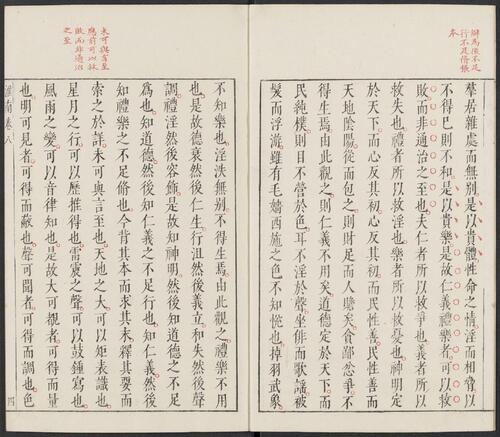 為
不足
行不足脩張
本
羣居雜處而無別是以貴禮性命之情淫而相脅以
不得已則不和是以貴樂是故仁義禮樂者可以救
敗而非通治之至也夫仁者所以救爭也義者所以
救失也禮者所以救淫也樂者所以救憂也神明定
於天下而心反其初心反其初而民性善民性善而
天地陰陽從而包之則財足而人贍矣貪鄙忿爭不
得生焉由此觀之則仁義不用矣道德定於天下而
民純樸則目不營於色耳不淫於聲坐俳而歌謠被
髮而浮游雖有毛嬙西施之色不知悅也掉羽武象
未可與言至
應前可以救
敗而非通治
之至
不知樂也淫泆無別不得生焉由此觀之禮樂不用
也是故德衰然後仁生行沮然後義立和失然後聲
調禮淫然後容飾是故知神明然後知道德之不足
為也知道德然後知仁義之不足行也知仁義然後
知禮樂之不足脩也今背其本而求其末釋其要而
索之於詳未可與言至也天地之大可以矩表識也
星月之行可以歷推得也雷震之聲可以鼓鐘寫也
風雨之變可以音律知也是故大可覩者可得而量
也明可見者可得而蔽也聲可聞者可得而調也色
淮南卷八
四